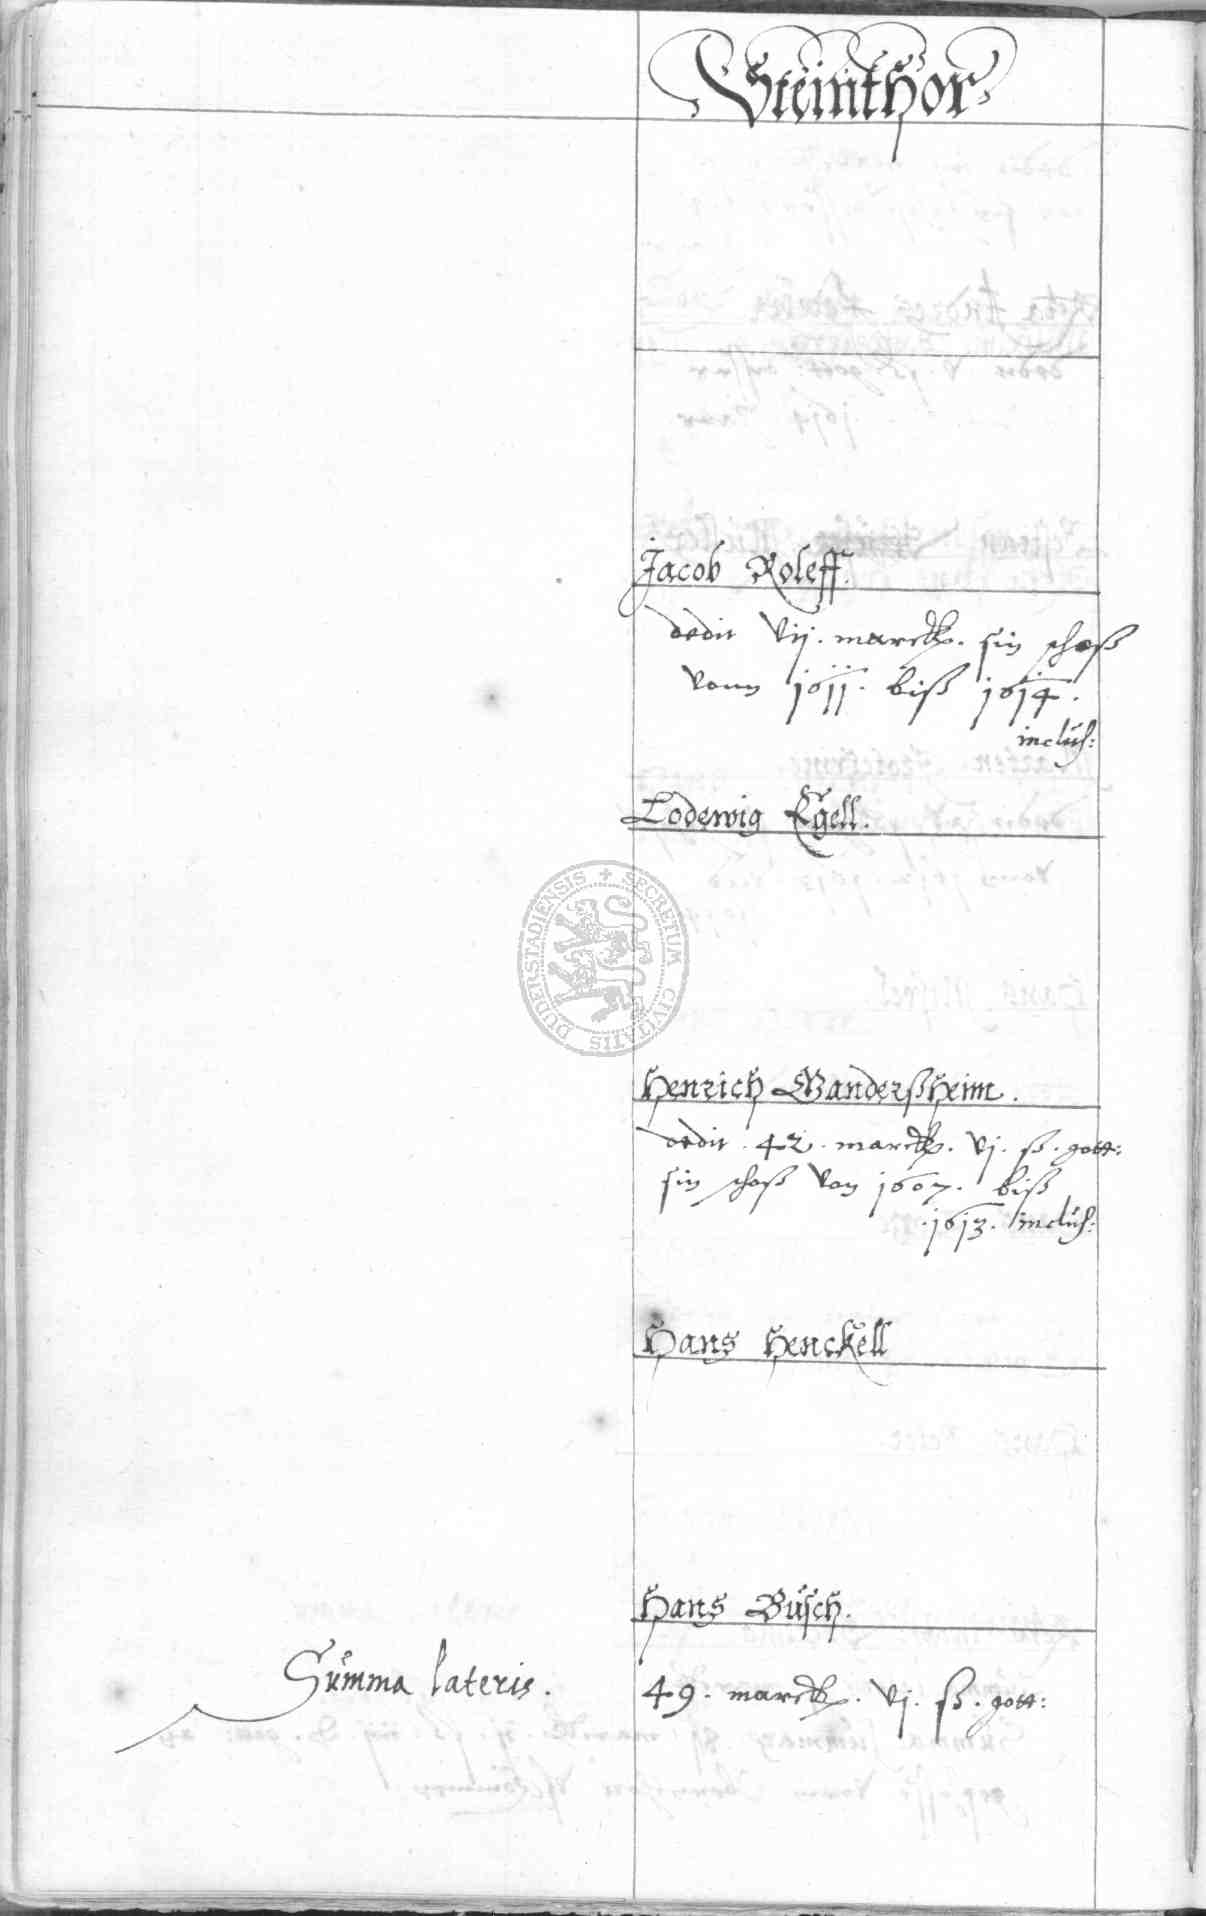 Steinthor
Jacob Roleff.
dedit vij. marck. sin schoß
vonn 1611. biß 1614.
inclus:
Lodewig Egell.
SECRETUM CIVITATIS DUDERSTADIENSIS
Henrich Gandersheim.
dedit. 42. marck. vj. ß. gott:
sin schoß von 1607. biß
.1613. inclus:
Hans Henckell
Hans Büsch.
Summa lateris. 49. marck. vj. ß. gott: